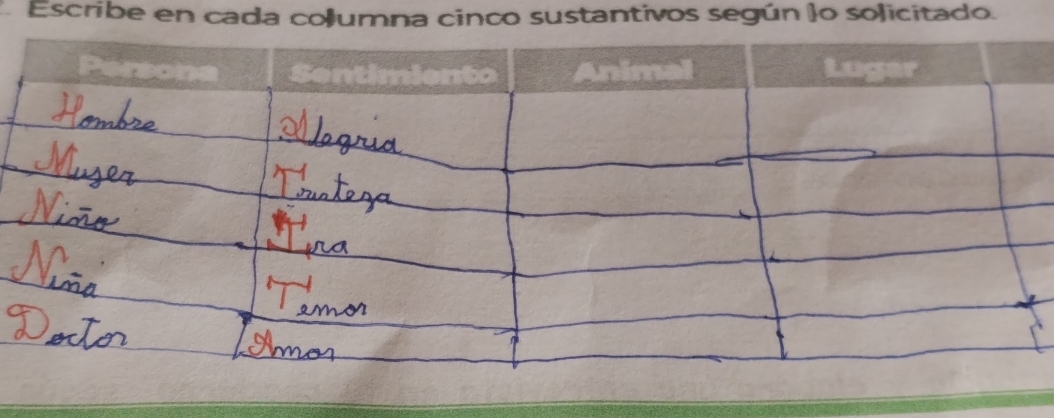 Escribe en cada columna cinco sustantivos según lo solicitado.
Persona Sentimiento Animal Lugar
Hombre Alegria
Mujer Tristeza
Niño Ira
Niña Temor
Doctor Amor